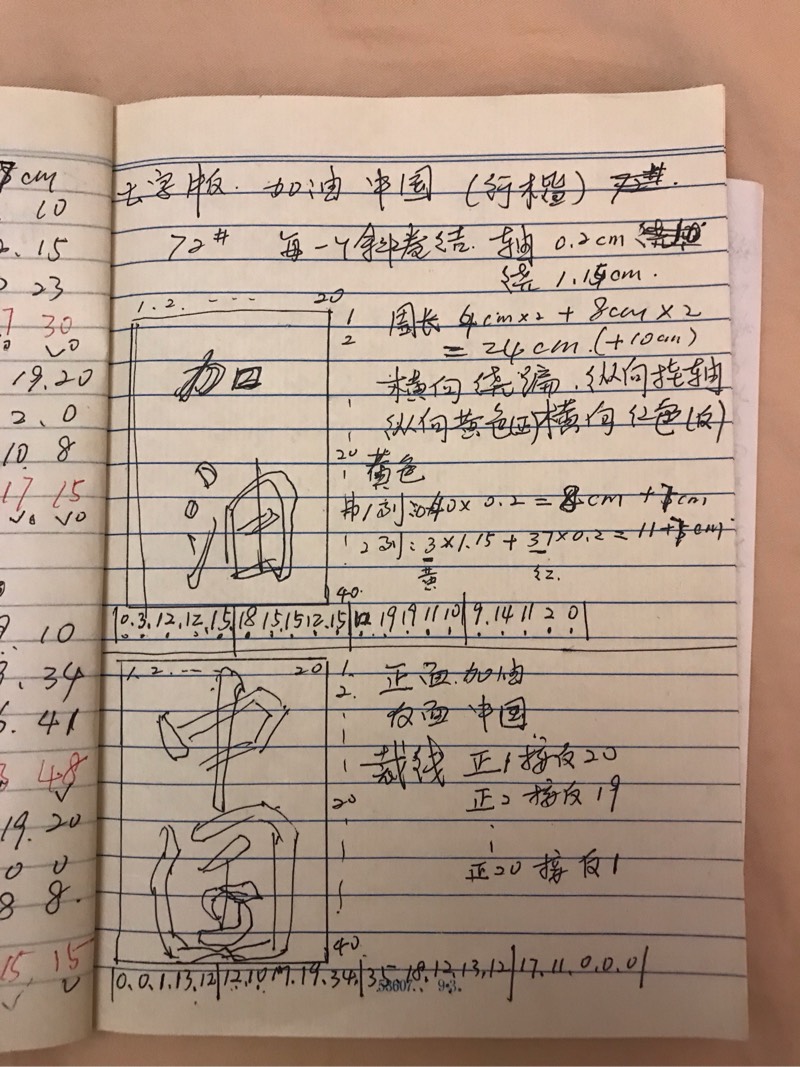 cm
10
2.15
2 23
7 30
19.20
2.0
10 8
17 15
10
3.34
5.41
3 48
19.20
0 0
8 8.
15 15
字版. 加油 中国 (行楷) 72#.
72# 每一个斜卷结. 轴 0.2cm
绕 1.15cm.
1.2. --- 20
1
2
20
40.
加
油
周长 4cm×2 + 8cm×2
= 24cm.(+10cm)
横向绕编.纵向挂轴
纵向黄色(正)横向红色(反)
黄色
第1列: 40×0.2 = 8cm +7cm
2列: 3×1.15 + 37×0.2 = 11+7cm
黄 红.
0.3.12.12.15 18 15.15 12.15 19 19 11 10 9.14 11 2 0
1.2.--- 20
1.
2.
20
40.
中
国
正面.加油
反面 中国
裁线 正1接反20
正2 接反19
正20 接反1
0.0.1.13.12 12.10 17.19.34. 35.18.12.13.12 17.11.0.0.0
58607. 9.3.